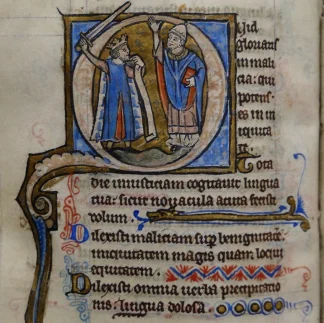 Quid
glorians
in mali
cia: qui
potens
es in in
iquita
te. Tota
die iniusticiam cogitauit lingua
tua: sicut nouacula acuta fecisti
dolum.
Dilexisti maliciam sup benignitate:
iniquitatem magis quam loqui
equitatem.
Dilexisti omnia uerba precipitatio
nis: lingua dolosa.